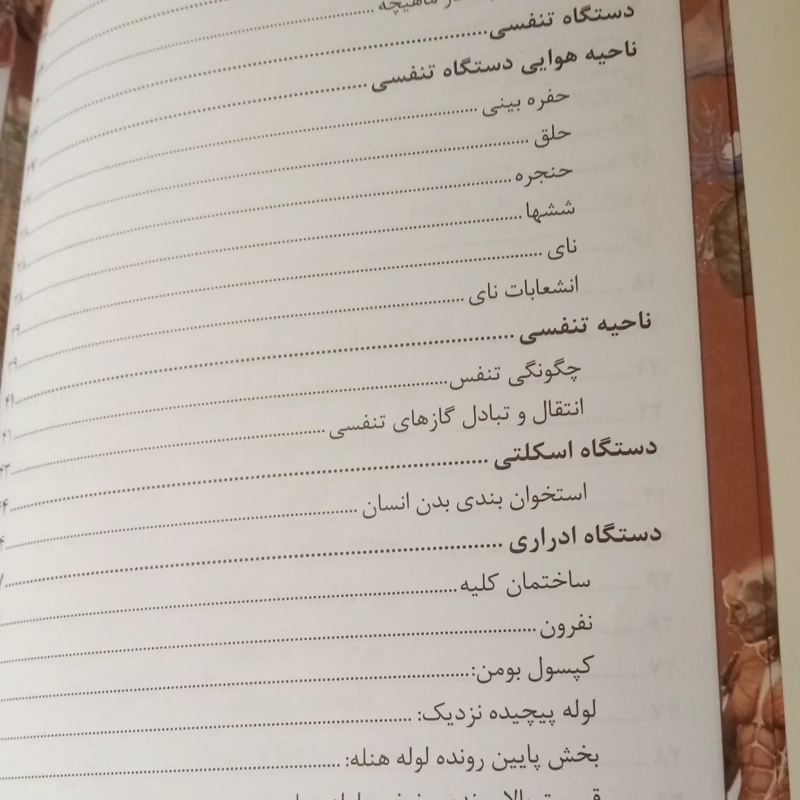 ماهیچه
دستگاه تنفسی
ناحیه هوایی دستگاه تنفسی
حفره بینی
حلق
حنجره
ششها
نای ۳۹
انشعابات نای ۳۹
ناحیه تنفسی ۴۱
چگونگی تنفس ۴۱
انتقال و تبادل گازهای تنفسی ۴۳
دستگاه اسکلتی
استخوان بندی بدن انسان
دستگاه ادراری
ساختمان کلیه
نفرون
کپسول بومن:
لوله پیچیده نزدیک:
بخش پایین رونده لوله هنله: